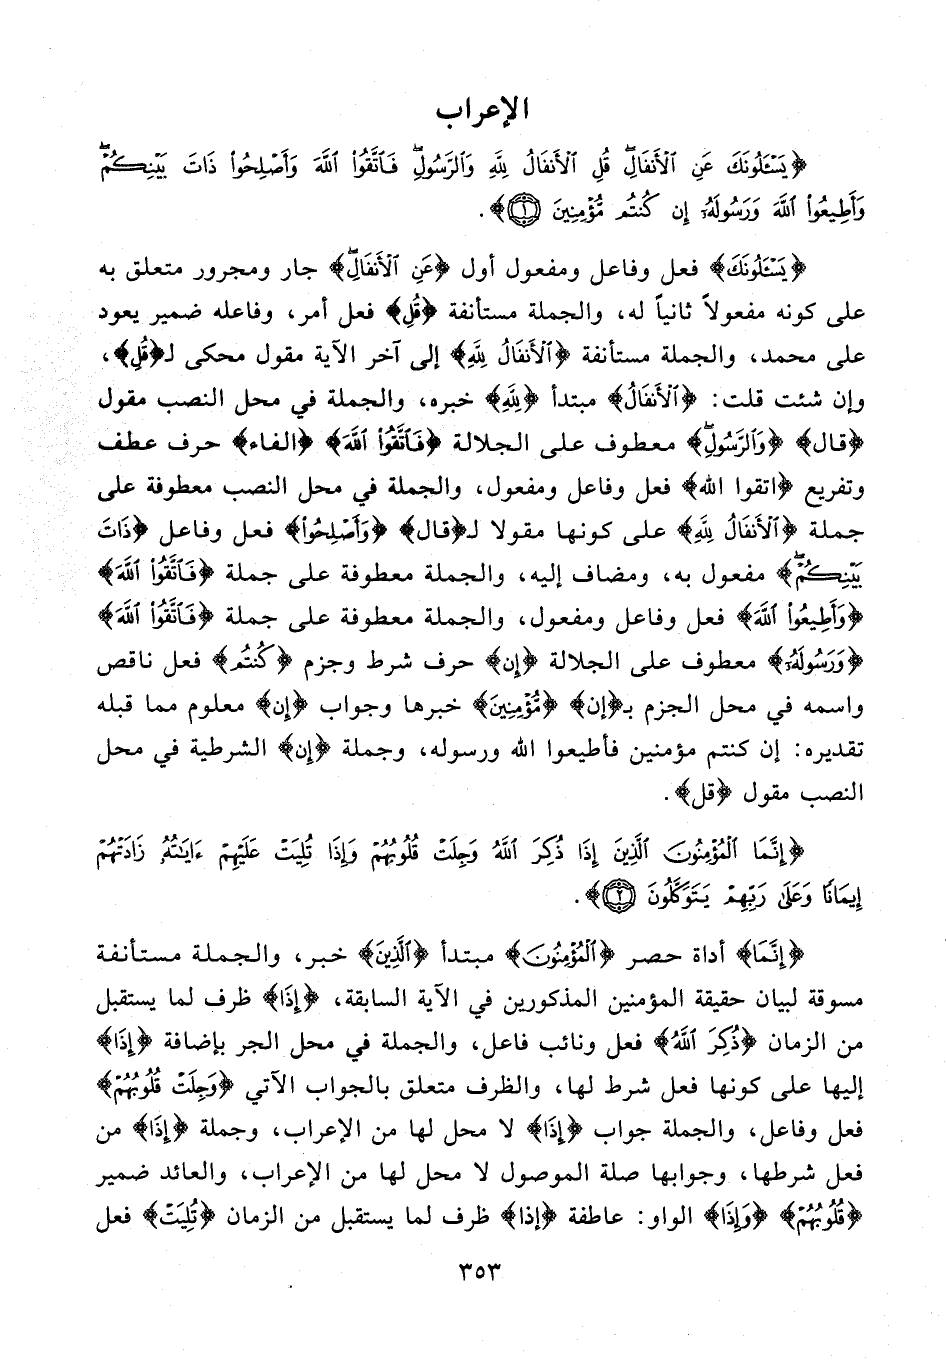 الإعراب
﴿يَسْـَٔلُونَكَ عَنِ ٱلْأَنفَالِۖ قُلِ ٱلْأَنفَالُ لِلَّهِ وَٱلرَّسُولِۖ فَٱتَّقُوا۟ ٱللَّهَ وَأَصْلِحُوا۟ ذَاتَ بَيْنِكُمْۖ
وَأَطِيعُوا۟ ٱللَّهَ وَرَسُولَهُۥٓ إِن كُنتُم مُّؤْمِنِينَ ١﴾.
﴿يَسْـَٔلُونَكَ﴾ فعل وفاعل ومفعول أول ﴿عَنِ ٱلْأَنفَالِۖ﴾ جار ومجرور متعلق به
على كونه مفعولاً ثانياً له، والجملة مستأنفة ﴿قُلِ﴾ فعل أمر، وفاعله ضمير يعود
على محمد، والجملة مستأنفة ﴿ٱلْأَنفَالُ لِلَّهِ﴾ إلى آخر الآية مقول محكى لـ﴿قُلِ﴾،
وإن شئت قلت: ﴿ٱلْأَنفَالُ﴾ مبتدأ ﴿لِلَّهِ﴾ خبره، والجملة في محل النصب مقول
﴿قال﴾ ﴿وَٱلرَّسُولِۖ﴾ معطوف على الجلالة ﴿فَٱتَّقُوا۟ ٱللَّهَ﴾ ﴿الفاء﴾ حرف عطف
وتفريع ﴿اتقوا الله﴾ فعل وفاعل ومفعول، والجملة في محل النصب معطوفة على
جملة ﴿ٱلْأَنفَالُ لِلَّهِ﴾ على كونها مقولا لـ﴿قال﴾ ﴿وَأَصْلِحُوا۟﴾ فعل وفاعل ﴿ذَاتَ
بَيْنِكُمْۖ﴾ مفعول به، ومضاف إليه، والجملة معطوفة على جملة ﴿فَٱتَّقُوا۟ ٱللَّهَ﴾
﴿وَأَطِيعُوا۟ ٱللَّهَ﴾ فعل وفاعل ومفعول، والجملة معطوفة على جملة ﴿فَٱتَّقُوا۟ ٱللَّهَ﴾
﴿وَرَسُولَهُۥٓ﴾ معطوف على الجلالة ﴿إِن﴾ حرف شرط وجزم ﴿كُنتُم﴾ فعل ناقص
واسمه في محل الجزم بـ﴿إن﴾ ﴿مُّؤْمِنِينَ﴾ خبرها وجواب ﴿إن﴾ معلوم مما قبله
تقديره: إن كنتم مؤمنين فأطيعوا الله ورسوله، وجملة ﴿إن﴾ الشرطية في محل
النصب مقول ﴿قل﴾.
﴿إِنَّمَا ٱلْمُؤْمِنُونَ ٱلَّذِينَ إِذَا ذُكِرَ ٱللَّهُ وَجِلَتْ قُلُوبُهُمْ وَإِذَا تُلِيَتْ عَلَيْهِمْ ءَايَٰتُهُۥ زَادَتْهُمْ
إِيمَٰنًا وَعَلَىٰ رَبِّهِمْ يَتَوَكَّلُونَ ٢﴾.
﴿إِنَّمَا﴾ أداة حصر ﴿ٱلْمُؤْمِنُونَ﴾ مبتدأ ﴿ٱلَّذِينَ﴾ خبر، والجملة مستأنفة
مسوقة لبيان حقيقة المؤمنين المذكورين في الآية السابقة، ﴿إِذَا﴾ ظرف لما يستقبل
من الزمان ﴿ذُكِرَ ٱللَّهُ﴾ فعل ونائب فاعل، والجملة في محل الجر بإضافة ﴿إِذَا﴾
إليها على كونها فعل شرط لها، والظرف متعلق بالجواب الآتي ﴿وَجِلَتْ قُلُوبُهُمْ﴾
فعل وفاعل، والجملة جواب ﴿إِذَا﴾ لا محل لها من الإعراب، وجملة ﴿إِذَا﴾ من
فعل شرطها، وجوابها صلة الموصول لا محل لها من الإعراب، والعائد ضمير
﴿قُلُوبُهُمْ﴾ ﴿وَإِذَا﴾ الواو: عاطفة ﴿إذا﴾ ظرف لما يستقبل من الزمان ﴿تُلِيَتْ﴾ فعل
٣٥٣